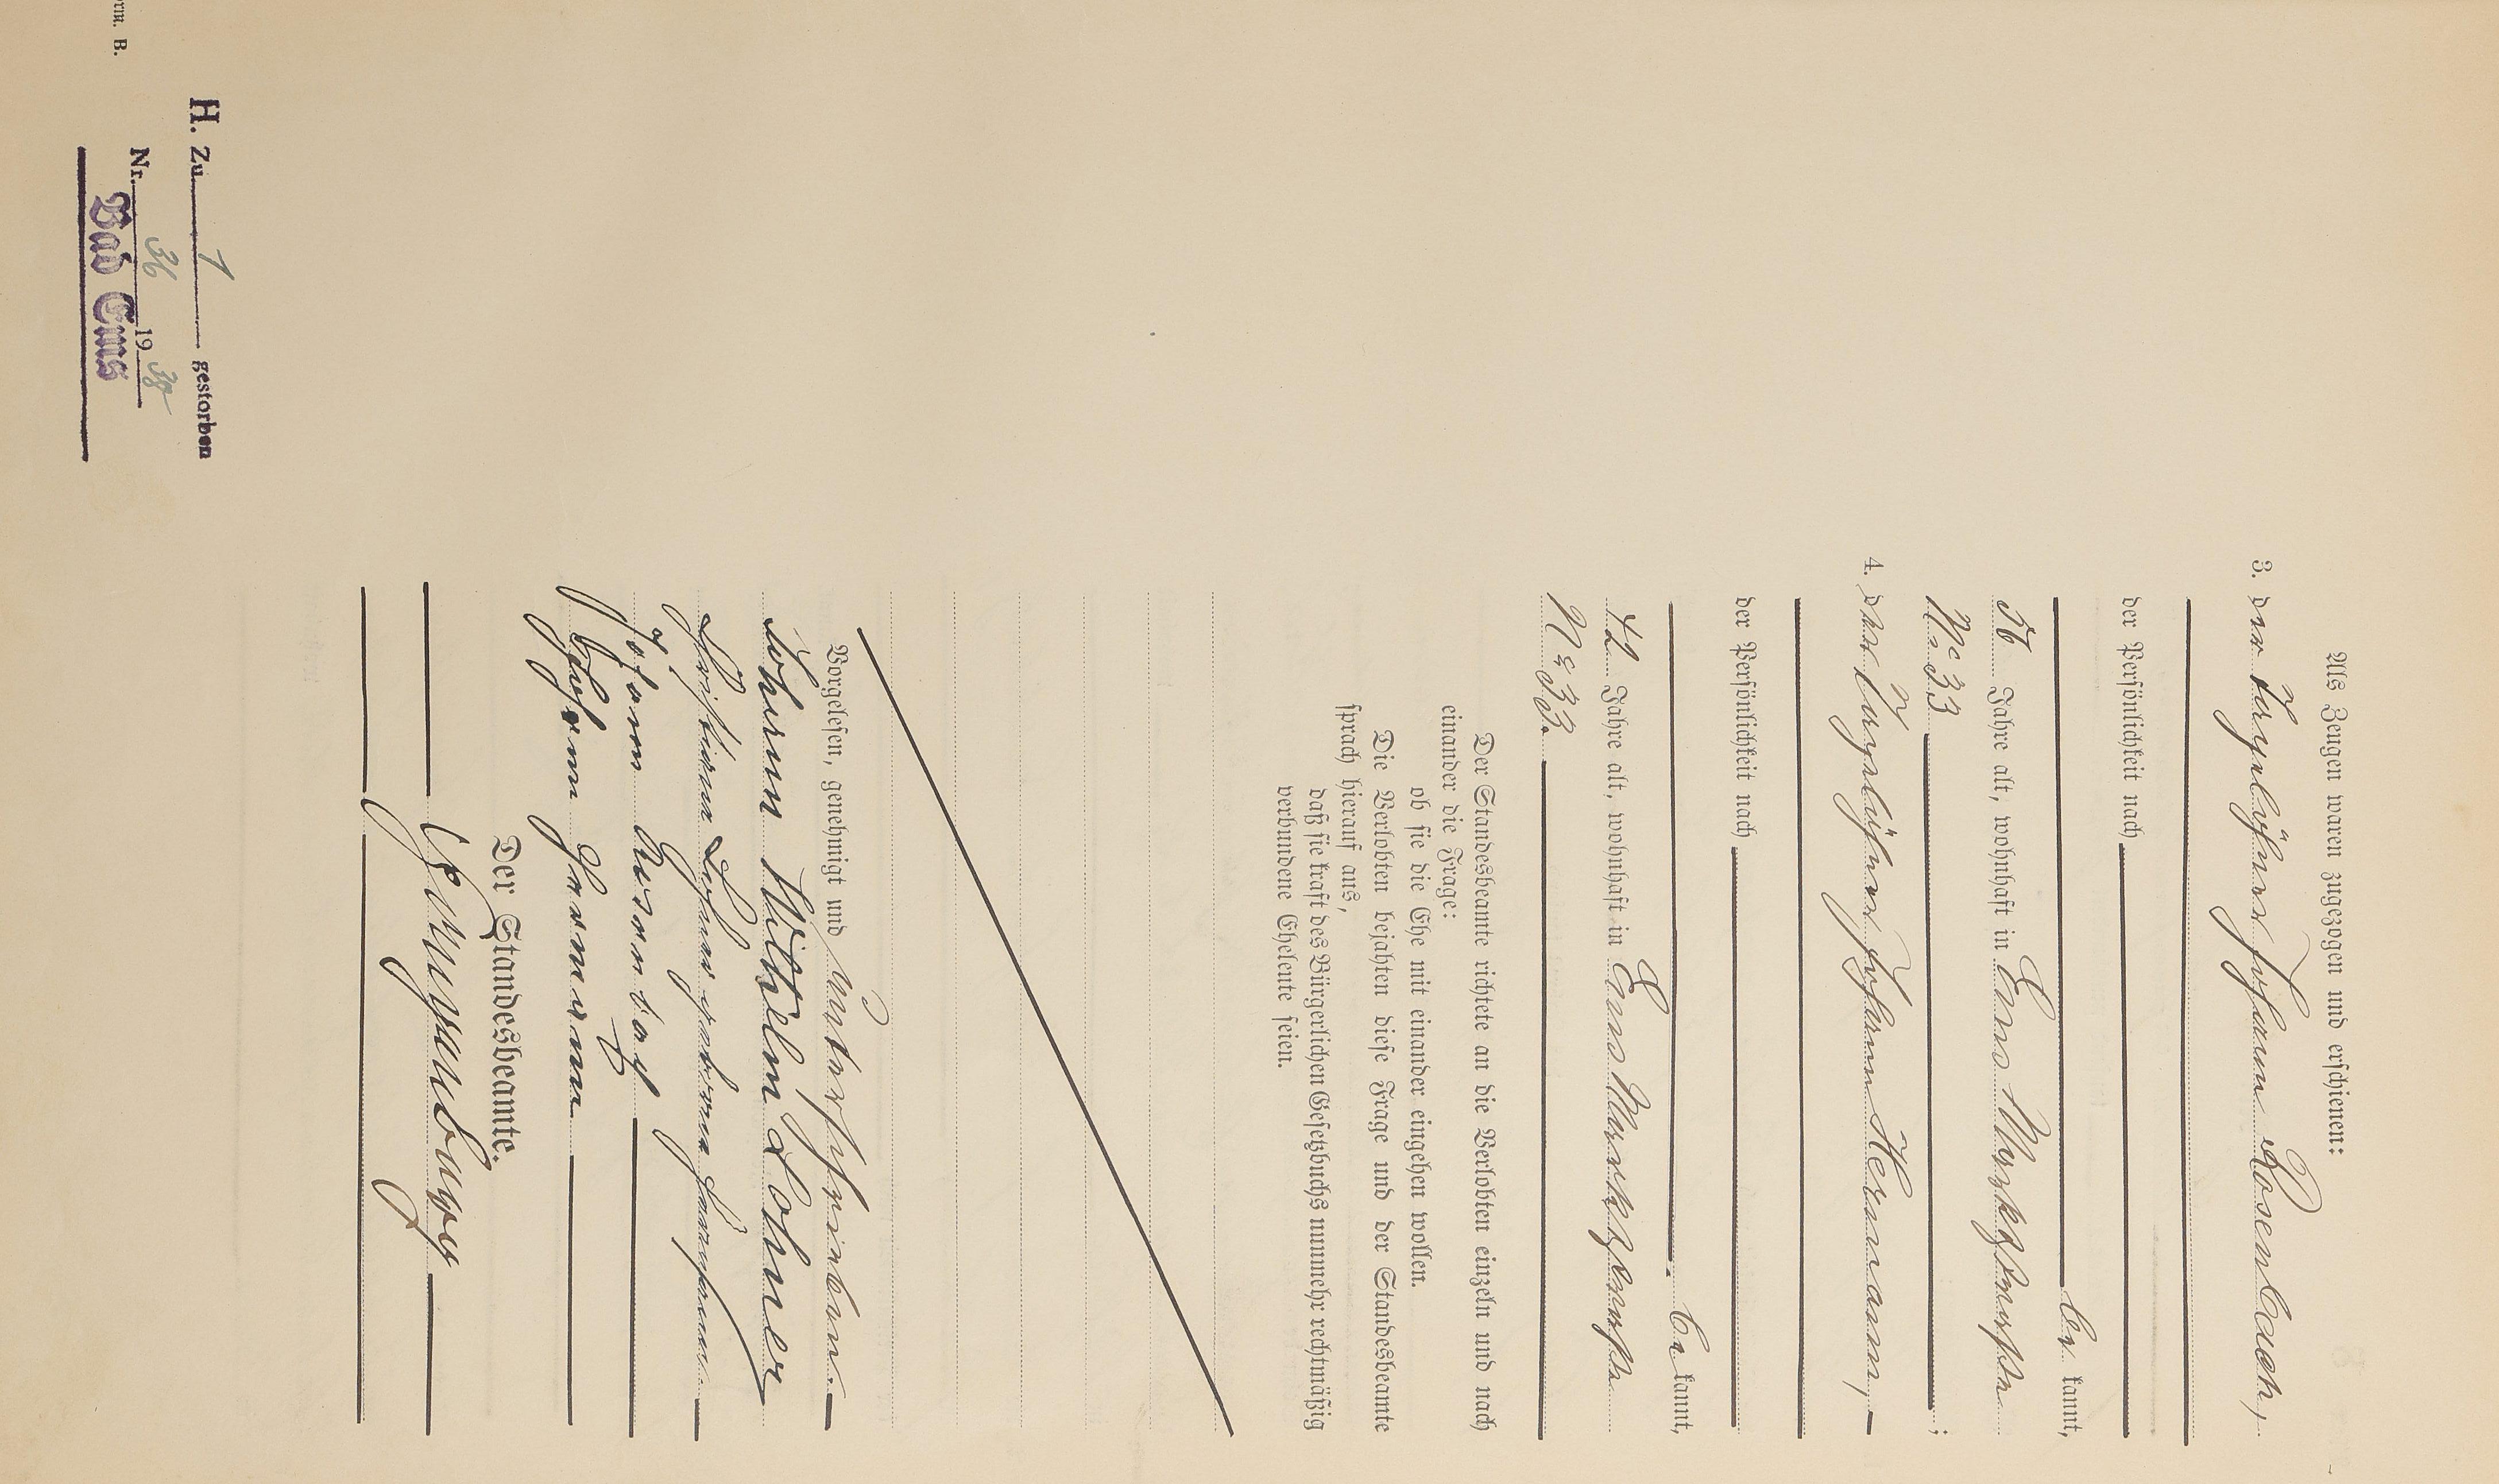 Als Zeugen waren zugezogen und erschienen:
3. der Tagelöhner Johann Rosenbach,
der Persönlichkeit nach
be kannt,
56 Jahre alt, wohnhaft in Ems Marktstraße
No 33 ;
4. der Tagelöhner Johann Hermann,
der Persönlichkeit nach
be kannt,
42 Jahre alt, wohnhaft in Ems Marktstraße
No 33.
Der Standesbeamte richtete an die Verlobten einzeln und nach
einander die Frage:
ob sie die Ehe mit einander eingehen wollen.
Die Verlobten bejahten diese Frage und der Standesbeamte
sprach hierauf aus,
daß sie kraft des Bürgerlichen Gesetzbuchs nunmehr rechtmäßig
verbundene Eheleute seien.
Vorgelesen, genehmigt und unterschrieben.
Johann Wilhelm Lohner
Christiane Lohner geborene
Johann Rosenbach
Johann Hermann
Der Standesbeamte.
H. Zu 1 gestorben
Nr. 36 19 38
Bad Ems
rm. B.